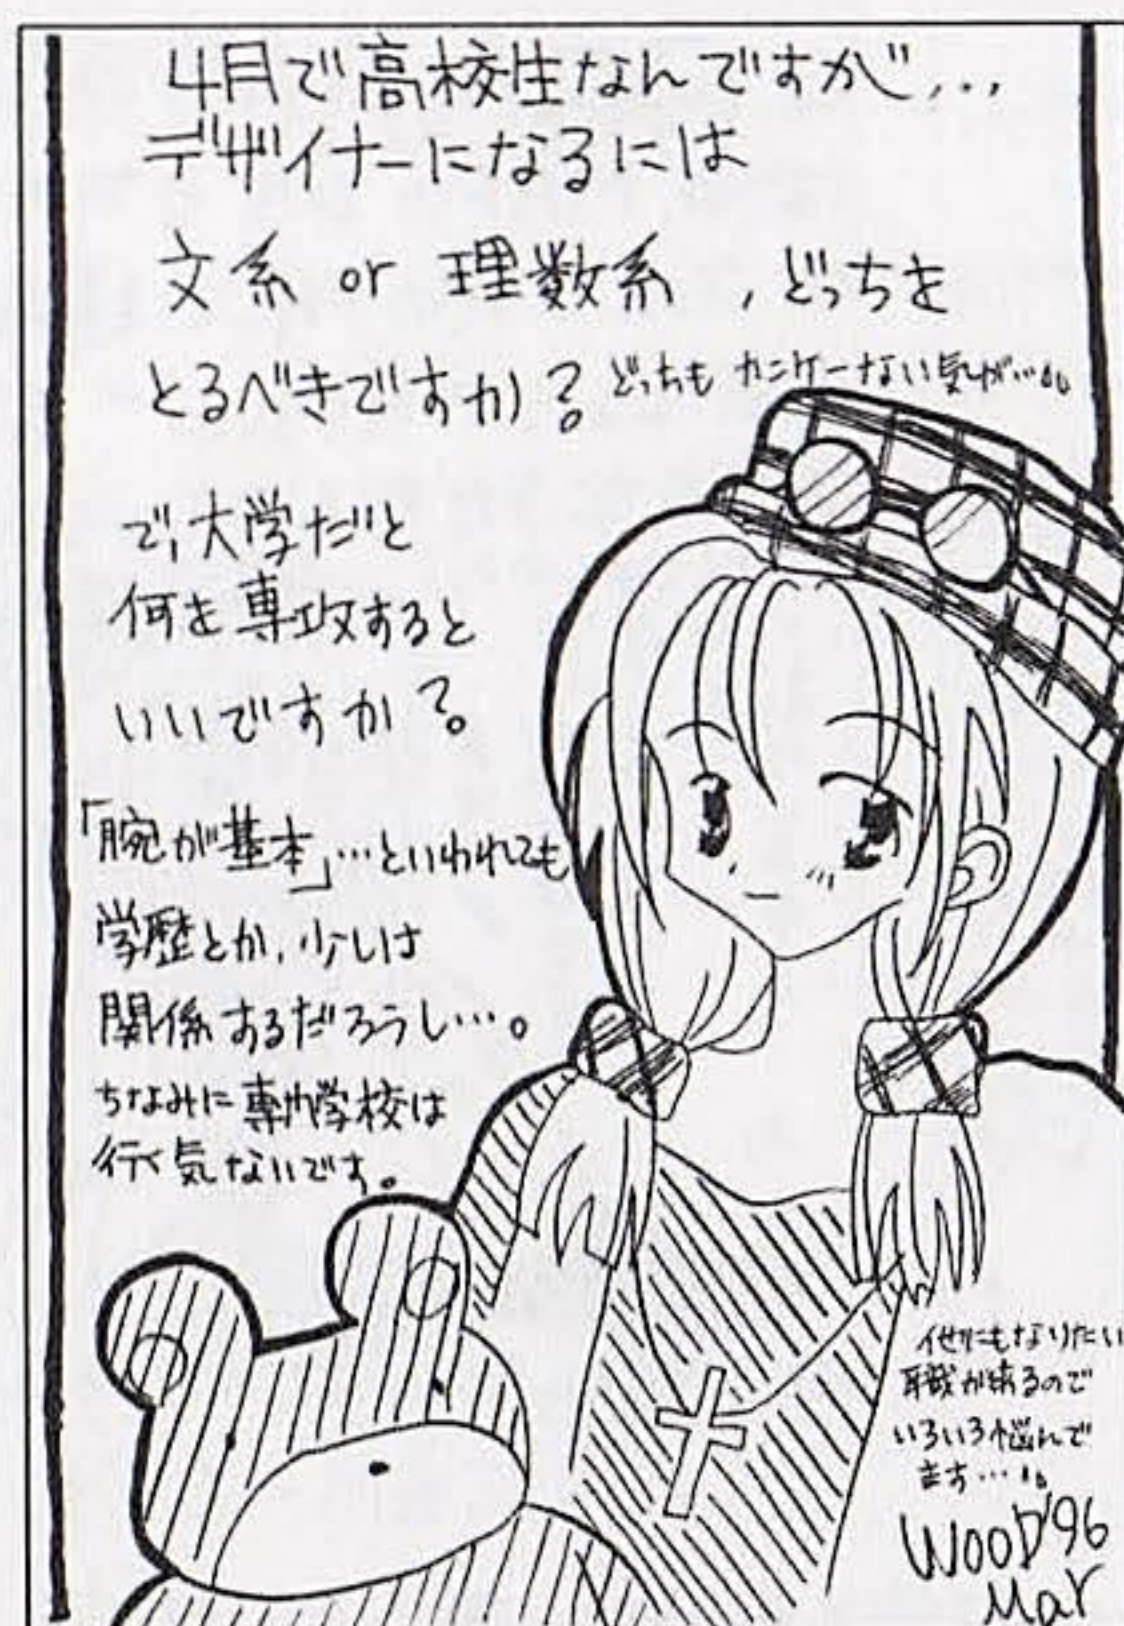 4月で高校生なんですが...
デザイナーになるには
文系 or 理数系 , どっちを
とるべきですか?
どっちもカンケーない気が…
で、大学だと
何を専攻すると
いいですか?
「腕が基本」…といわれても
学歴とか、少しは
関係あるだろうし…。
ちなみに専門学校は
行く気ないです。
他にもなりたい
職があるので
いろいろ悩んで
ます…
WOOD'96
Mar